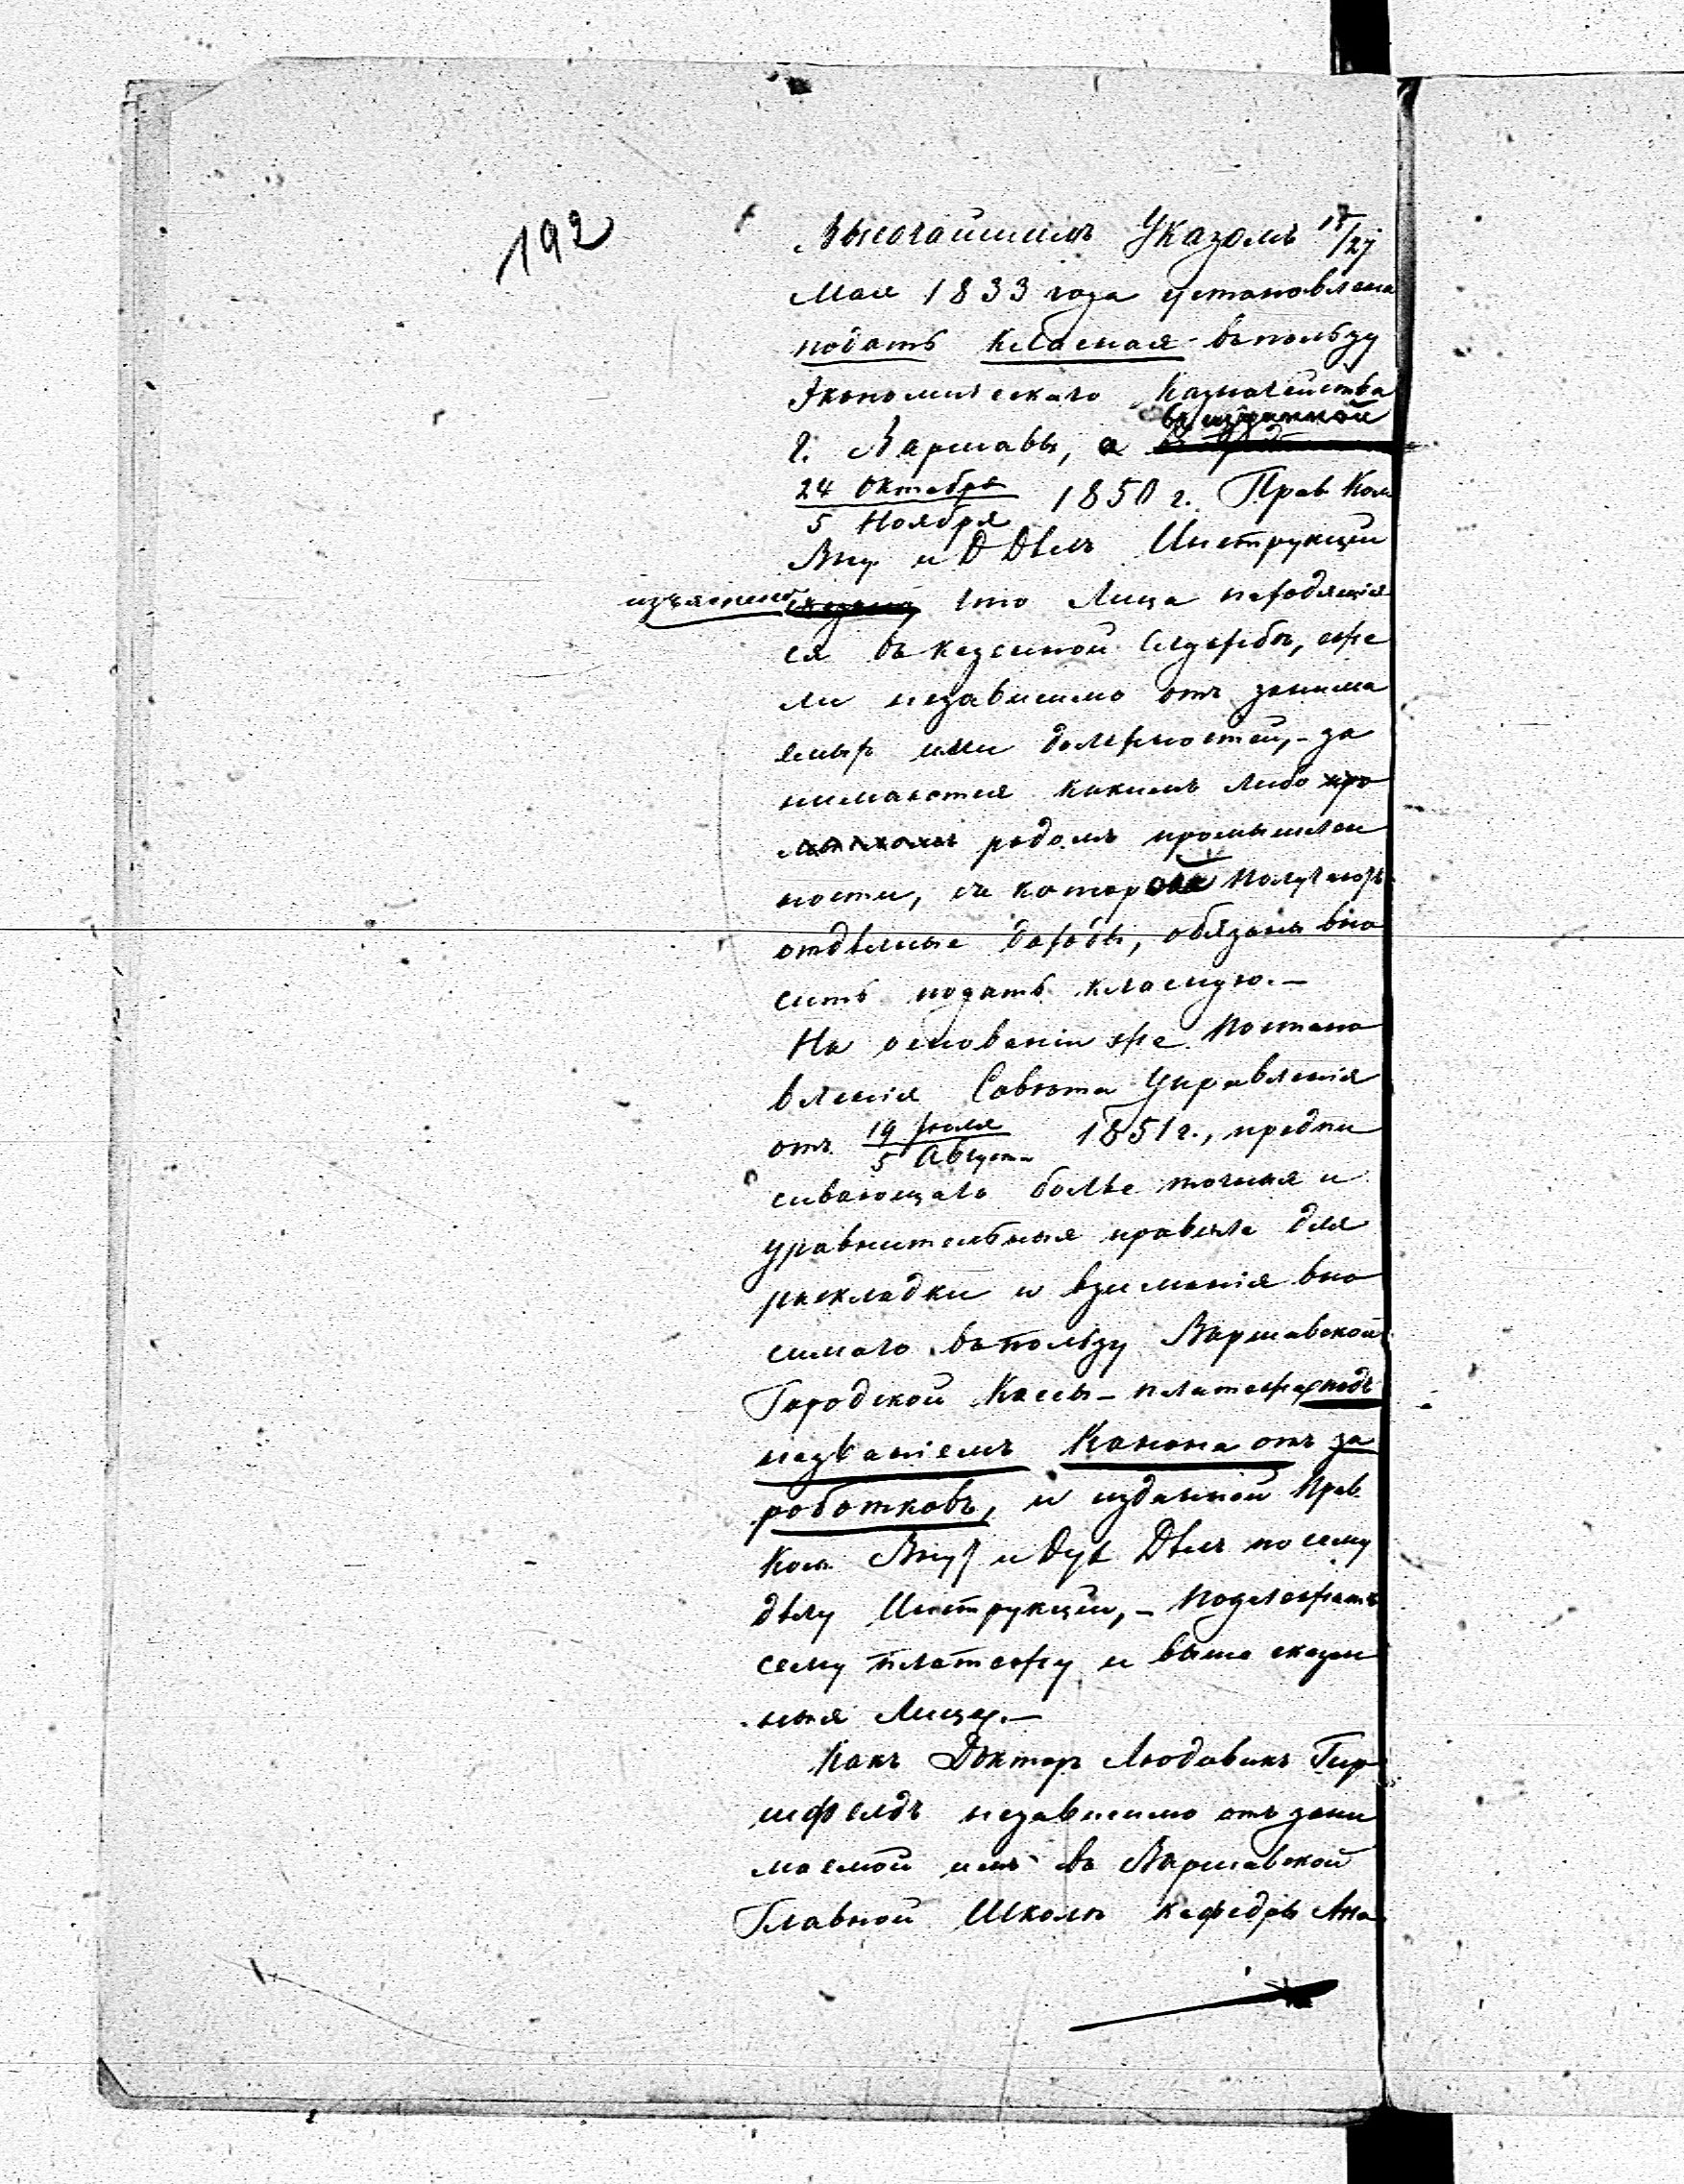 192
Высочайшимъ Указомъ 15/27
Мая 1833 года установлена
подать класная въ пользу
Экономическаго Казначейства
въ изданной
г. Варшавы, а
24 Октября / 5 Ноября 1850 г. Прав Ком
Вну. и Д Дѣлъ Инструкціи
изъяснено что Лица находящія
ся въ казенной Службѣ, еже
ли независимо отъ занима
емыхъ ими должностей, - за
нимаются какимъ либо
родомъ промышлен
ности, съ котор получаютъ
отдѣльные доходы, обязаны вно
сить подать класную. -
На основаніи же Постано
вленія Совѣта Управленія
отъ 19 Іюля / 5 Августа 1851 г., предпи
сывающаго болѣе точныя и
уравнительныя правила для
раскладки и взиманія вно
симаго въ пользу Варшавской
Городской Кассы - платежа подъ
названіемъ Канона отъ за
роботковъ, и изданной Прав
Ком. Внут и Дух Дѣлъ по сему
дѣлу Инструкціи, - подлежатъ
сему платежу и выше сказан
ныя Лица. -
Какъ Докторъ Людовикъ Гир
шфелдъ независимо отъ зани
маемой имъ въ Варшавской
Главной Школѣ кафедры Ана